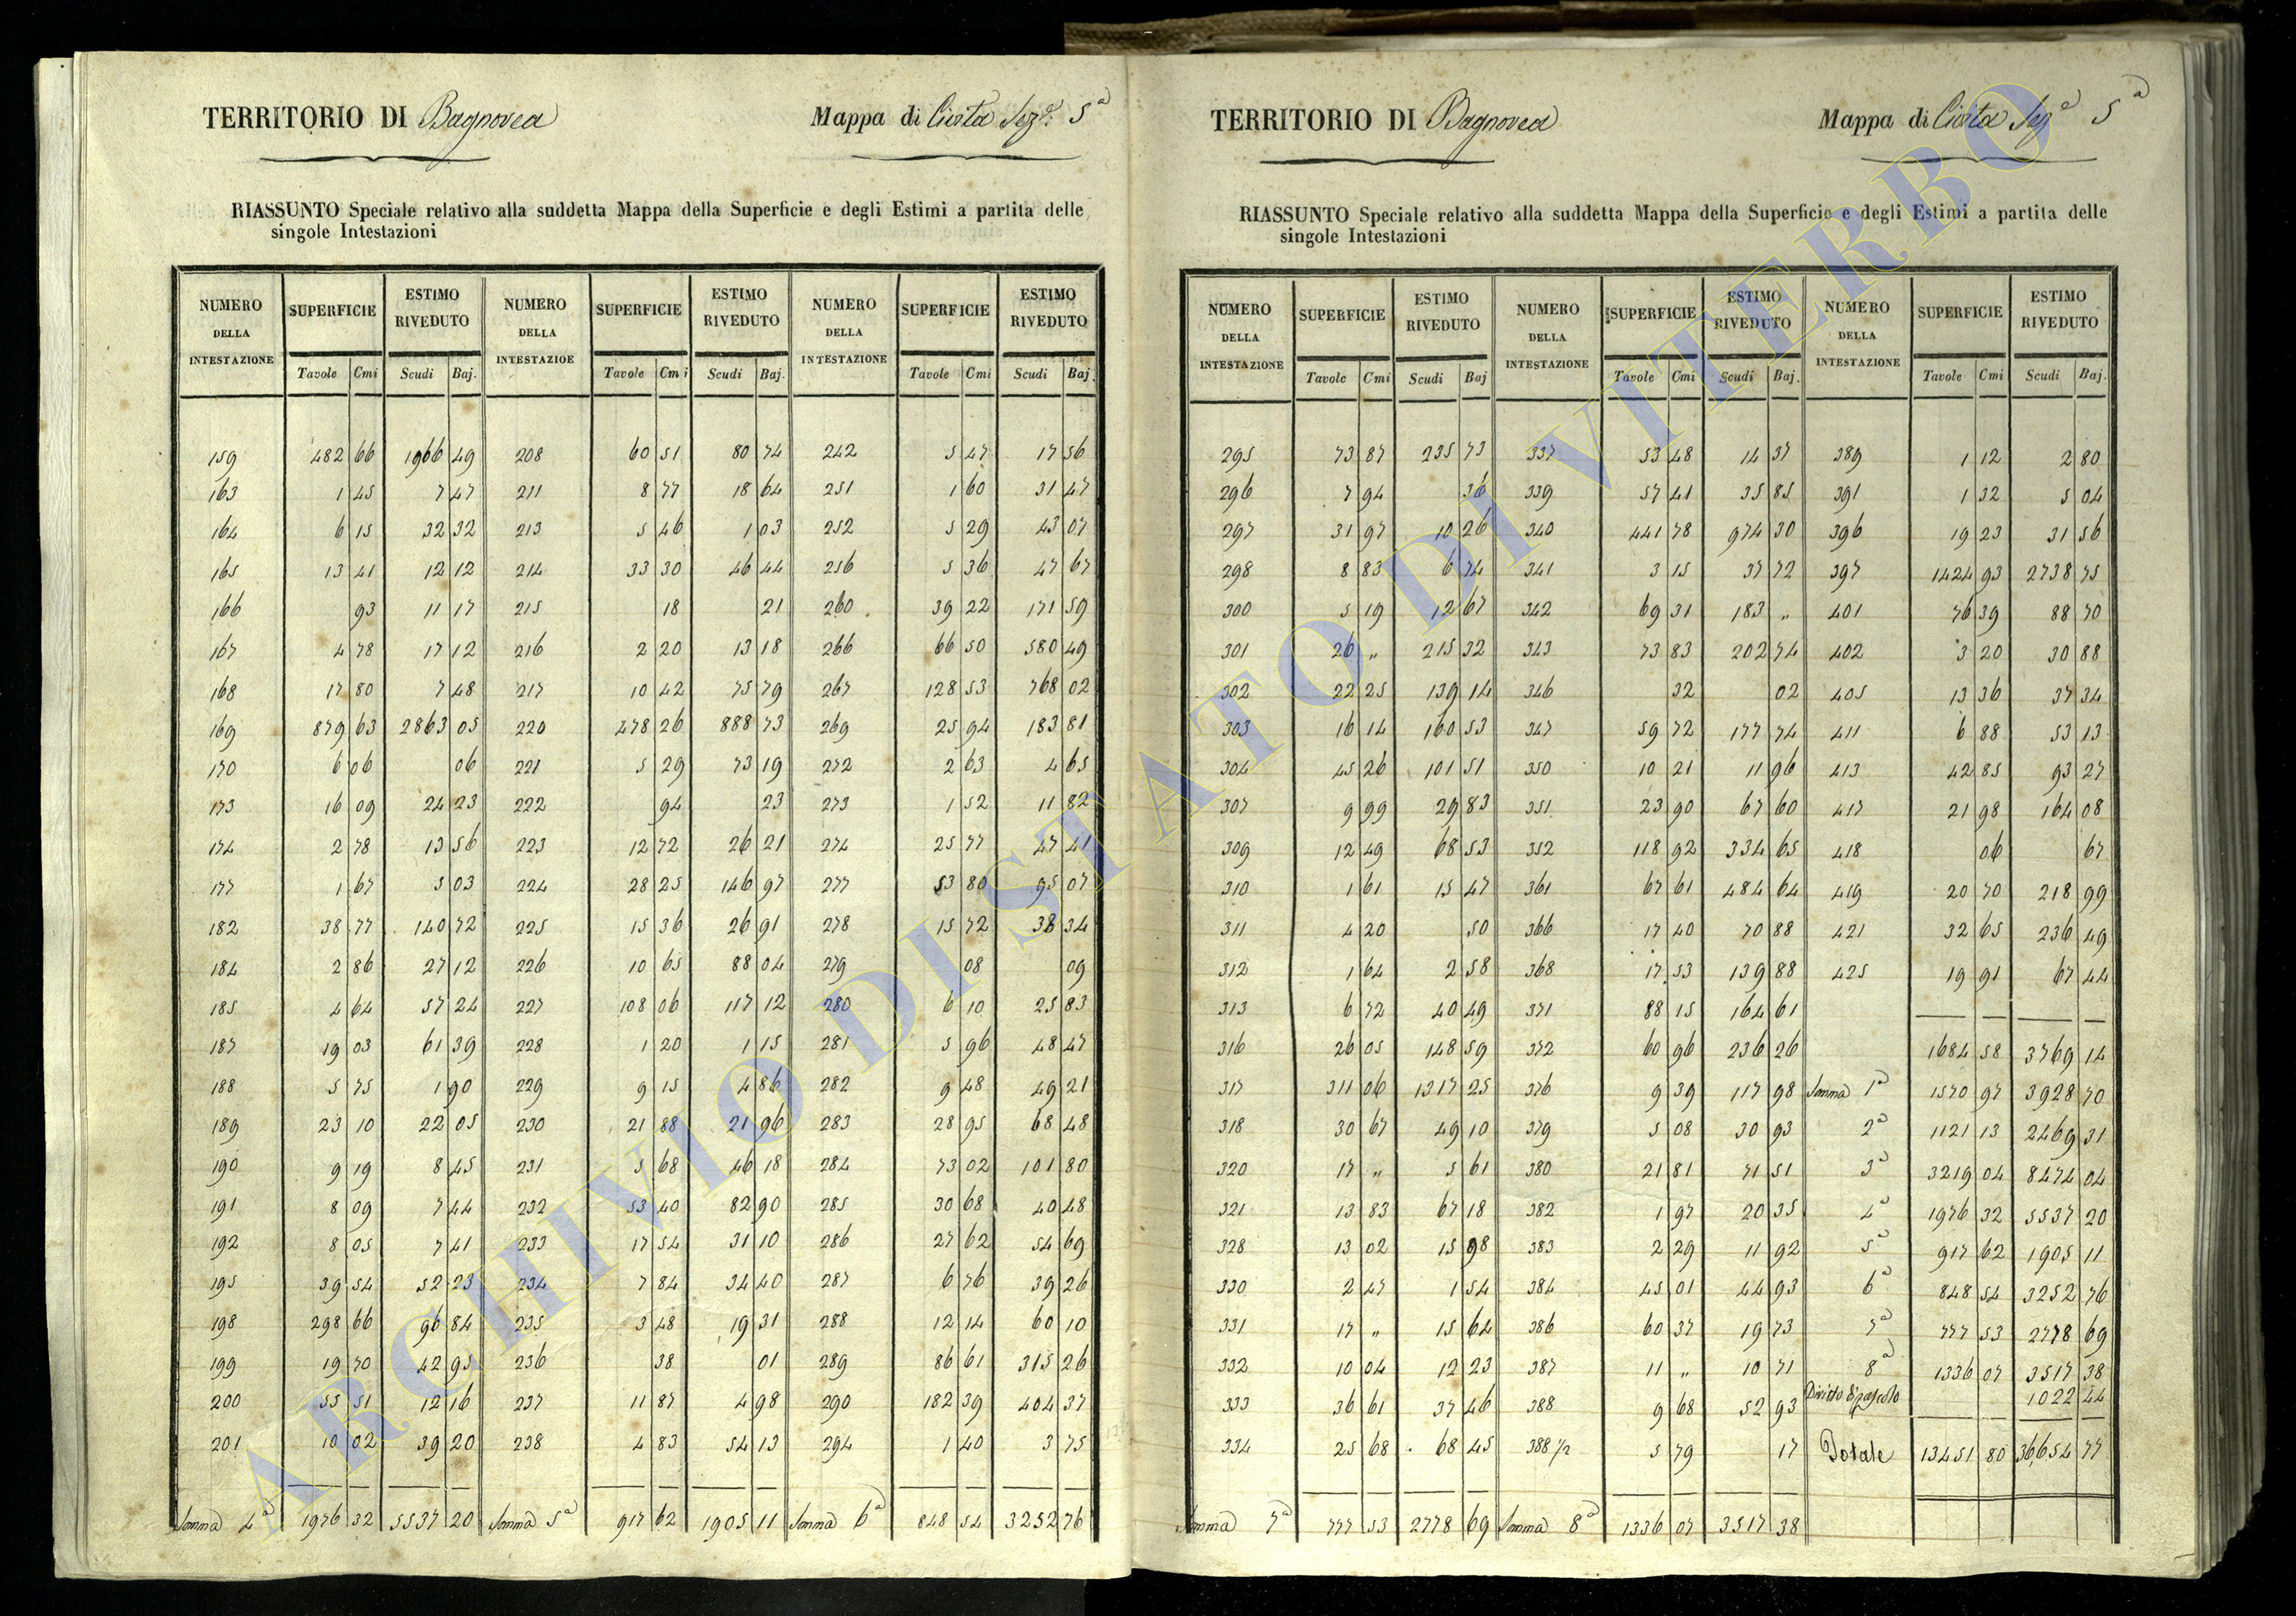 TERRITORIO DI Bagnorea Mappa di Civita Sezᵉ. 5ᵃ
RIASSUNTO Speciale relativo alla suddetta Mappa della Superficie e degli Estimi a partita delle
singole Intestazioni
NUMERO DELLA INTESTAZIONE SUPERFICIE ESTIMO RIVEDUTO NUMERO DELLA INTESTAZIOE SUPERFICIE ESTIMO RIVEDUTO NUMERO DELLA INTESTAZIONE SUPERFICIE ESTIMO RIVEDUTO
Tavole Cmi Scudi Baj. Tavole Cmi Scudi Baj. Tavole Cmi Scudi Baj.
159 482 66 1966 49 208 60 51 80 74 242 5 47 17 56
163 1 45 7 47 211 8 77 18 64 251 1 60 31 47
164 6 15 32 32 213 5 46 1 03 252 5 29 43 07
165 13 41 12 12 214 33 30 46 44 256 5 36 47 67
166 93 11 17 215 18 21 260 39 22 171 59
167 4 78 17 12 216 2 20 13 18 266 66 50 580 49
168 17 80 7 48 217 10 42 75 79 267 128 53 768 02
169 879 63 2863 05 220 478 26 888 73 269 25 94 183 81
170 6 06 06 221 5 29 73 19 272 2 63 4 65
173 16 09 24 23 222 94 23 273 1 52 11 82
174 2 78 13 56 223 12 72 26 21 274 25 77 47 41
177 1 67 5 03 224 28 25 146 97 277 53 80 95 07
182 38 77 140 72 225 15 36 26 91 278 15 72 38 34
184 2 86 27 12 226 10 65 88 04 279 08 09
185 4 64 57 24 227 108 06 117 12 280 6 10 25 83
187 19 03 61 39 228 1 20 1 15 281 5 96 48 47
188 5 75 1 90 229 9 15 4 86 282 9 48 49 21
189 23 10 22 05 230 21 88 21 96 283 28 95 68 48
190 9 19 8 45 231 5 68 46 18 284 73 02 101 80
191 8 09 7 44 232 53 40 82 90 285 30 68 40 48
192 8 05 7 41 233 17 54 31 10 286 27 62 54 69
195 39 54 52 23 234 7 84 34 40 287 6 76 39 26
198 298 66 96 84 235 3 48 19 31 288 12 14 60 10
199 19 70 42 95 236 38 01 289 86 61 315 26
200 55 51 12 16 237 11 87 4 98 290 182 39 404 37
201 10 02 39 20 238 4 83 54 13 294 1 40 3 75
Somma 4ᵃ 1976 32 5537 20 Somma 5ᵃ 917 62 1905 11 Somma 6ᵃ 848 54 3252 76
TERRITORIO DI Bagnorea Mappa di Civita Sezᵉ 5ᵃ
RIASSUNTO Speciale relativo alla suddetta Mappa della Superficie e degli Estimi a partita delle
singole Intestazioni
NUMERO DELLA INTESTAZIONE SUPERFICIE ESTIMO RIVEDUTO NUMERO DELLA INTESTAZIONE SUPERFICIE ESTIMO RIVEDUTO NUMERO DELLA INTESTAZIONE SUPERFICIE ESTIMO RIVEDUTO
Tavole Cmi Scudi Baj Tavole Cmi Scudi Baj. Tavole Cmi Scudi Baj.
295 73 87 235 73 337 53 48 14 37 389 1 12 2 80
296 7 94 36 339 57 41 35 85 391 1 32 5 04
297 31 97 10 26 340 441 78 974 30 396 19 23 31 56
298 8 83 6 74 341 3 15 37 72 397 1424 93 2738 75
300 5 19 12 67 342 69 31 183 „ 401 76 39 88 70
301 26 „ 215 32 343 73 83 202 74 402 3 20 30 88
302 22 25 139 14 346 32 02 405 13 36 37 34
303 16 14 160 53 347 59 72 177 74 411 6 88 53 13
304 45 26 101 51 350 10 21 11 96 413 42 85 93 27
307 9 99 29 83 351 23 90 67 60 417 21 98 164 08
309 12 49 68 53 352 118 92 334 65 418 06 67
310 1 61 15 47 361 67 61 484 64 419 20 70 218 99
311 4 20 50 366 17 40 70 88 421 32 65 236 49
312 1 64 2 58 368 17 53 139 88 425 19 91 67 44
313 6 72 40 49 371 88 15 164 61
316 26 05 148 59 372 60 96 236 26 1684 58 3769 14
317 311 06 1317 25 376 9 39 117 98 Somma 1ᵃ 1570 97 3928 70
318 30 67 49 10 379 5 08 30 93 2ᵃ 1121 13 2469 31
320 17 „ 5 61 380 21 81 71 51 3ᵃ 3219 04 8474 04
321 13 83 67 18 382 1 97 20 35 4ᵃ 1976 32 5537 20
328 13 02 15 98 383 2 29 11 92 5ᵃ 917 62 1905 11
330 2 47 1 54 384 45 01 44 93 6ᵃ 848 54 3252 76
331 17 „ 15 64 386 60 37 19 73 7ᵃ 777 53 2778 69
332 10 04 12 23 387 11 „ 10 71 8ᵃ 1336 07 3517 38
333 36 61 37 46 388 9 68 52 93 Diritto di pascolo 1022 44
334 25 68 68 45 388 1/2 5 79 17 Totale 13451 80 36,654 77
Somma 7ᵃ 777 53 2778 69 Somma 8ᵃ 1336 07 3517 38
ARCHIVIO DI STATO DI VITERBO